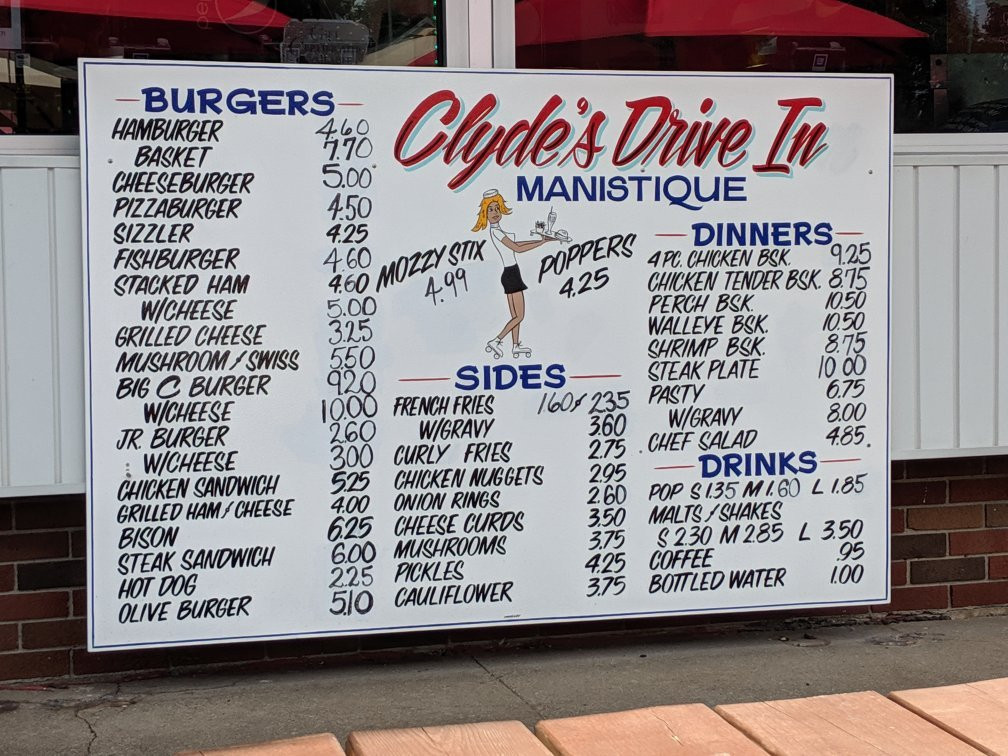 BURGERS
HAMBURGER 4.60
BASKET 7.70
CHEESEBURGER 5.00
PIZZABURGER 4.50
SIZZLER 4.25
FISHBURGER 4.60
STACKED HAM 4.60
W/CHEESE 5.00
GRILLED CHEESE 3.25
MUSHROOM & SWISS 5.50
BIG C BURGER 9.20
W/CHEESE 10.00
JR. BURGER 2.60
W/CHEESE 3.00
CHICKEN SANDWICH 5.25
GRILLED HAM & CHEESE 4.00
BISON 6.25
STEAK SANDWICH 6.00
HOT DOG 2.25
OLIVE BURGER 5.10
Clyde's Drive In
MANISTIQUE
MOZZY STIX
4.99
POPPERS
4.25
SIDES
FRENCH FRIES 1.60 & 2.35
W/GRAVY 3.60
CURLY FRIES 2.75
CHICKEN NUGGETS 2.95
ONION RINGS 2.60
CHEESE CURDS 3.50
MUSHROOMS 3.75
PICKLES 4.25
CAULIFLOWER 3.75
DINNERS
4 PC. CHICKEN BSK. 9.25
CHICKEN TENDER BSK. 8.75
PERCH BSK. 10.50
WALLEYE BSK. 10.50
SHRIMP BSK. 8.75
STEAK PLATE 10 00
PASTY 6.75
W/GRAVY 8.00
CHEF SALAD 4.85
DRINKS
POP S 1.35 M 1.60 L 1.85
MALTS & SHAKES
S 2.30 M 2.85 L 3.50
COFFEE .95
BOTTLED WATER 1.00